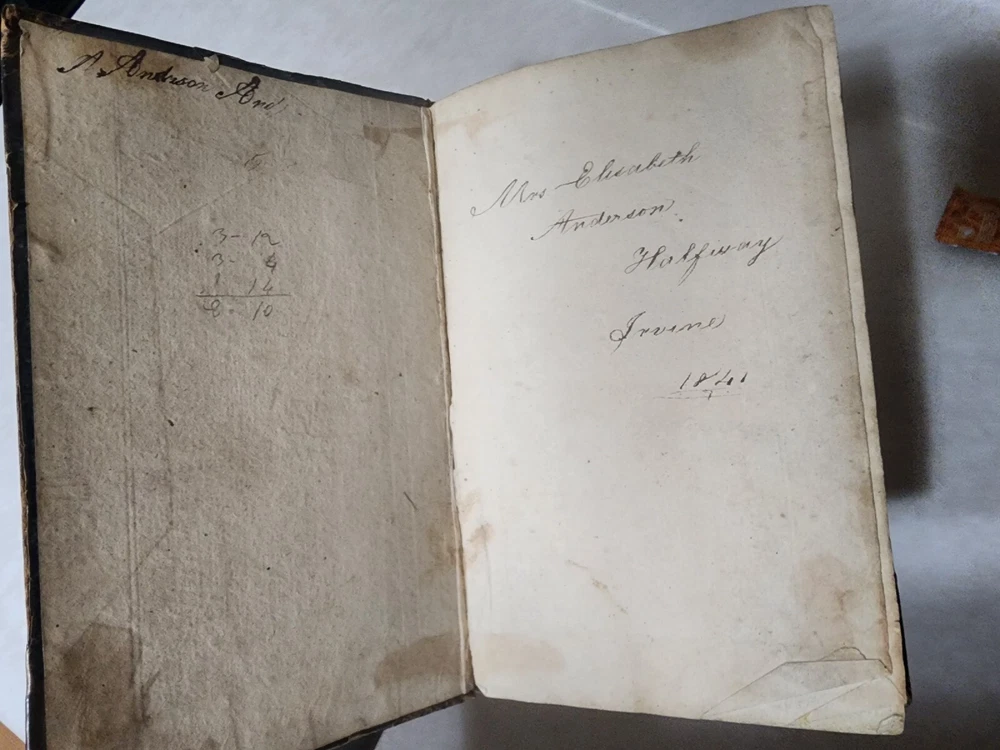 A Anderson And
3- 12
3- 4
1 14
8- 10
Mrs Elisabeth
Anderson.
Halfway
Irvine
1841